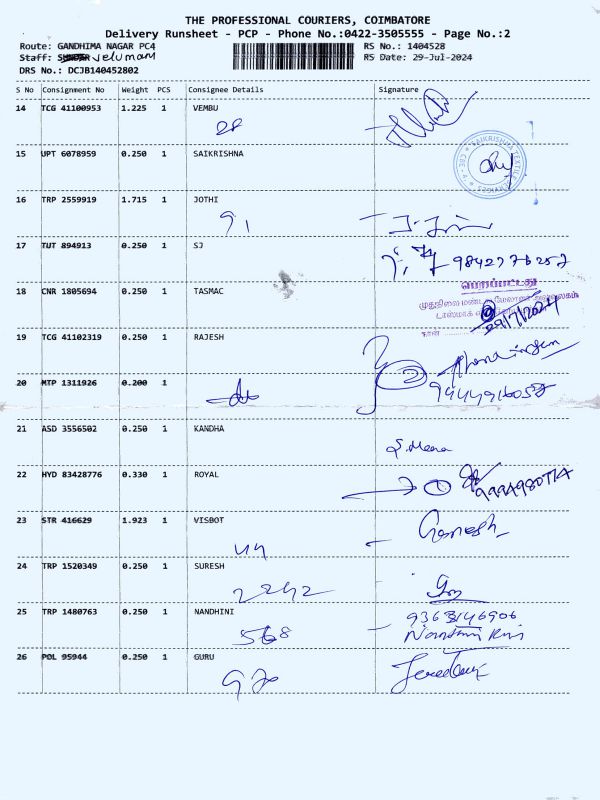 THE PROFESSIONAL COURIERS, COIMBATORE
Delivery Runsheet - PCP - Phone No.:0422-3505555 - Page No.:2
Route: GANDHIMA NAGAR PC4 RS No.: 1404528
Staff: velumani RS Date: 29-Jul-2024
DRS No.: DCJB140452802
S No Consignment No Weight PCS Consignee Details Signature
14 TCG 41100953 1.225 1 VEMBU
28
15 UPT 6078959 0.250 1 SAIKRISHNA SAIKRISHNA TEXTILE
16 TRP 2559919 1.715 1 JOTHI
91
17 TUT 894913 0.250 1 SJ
பெறப்பட்டது
18 CNR 1805694 0.250 1 TASMAC
29/7/2024
நாள்
19 TCG 41102319 0.250 1 RAJESH
20 MTP 1311926 0.200 1
21 ASD 3556502 0.250 1 KANDHA
S. Meena
22 HYD 83428776 0.330 1 ROYAL
23 STR 416629 1.923 1 VISBOT Ganesh
24 TRP 1520349 0.250 1 SURESH
2242
25 TRP 1480763 0.250 1 NANDHINI 9363146906
568
26 POL 95944 0.250 1 GURU
970